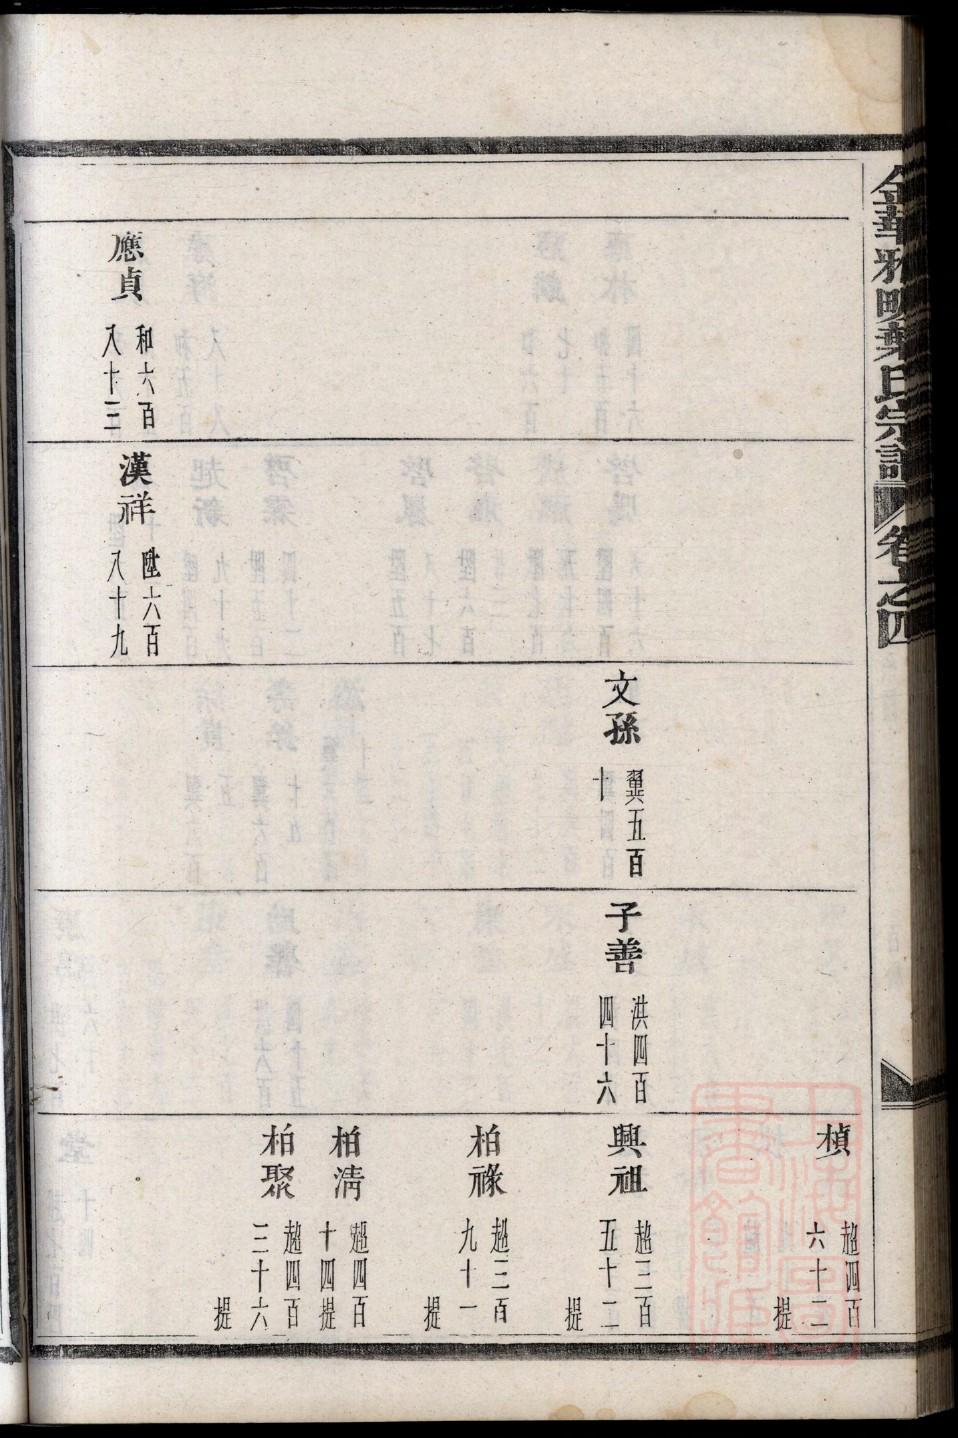 金華雅畈葉氏宗譜 卷之四
應貞 和六百八十三
漢祥 陞六百八十九
文孫 翼五百十
子善 洪四百四十六
楨 超四百六十二 提
興祖 超三百五十二 提
柏祿 超三百九十一 提
柏淸 超四百十四 提
柏聚 超四百三十六 提